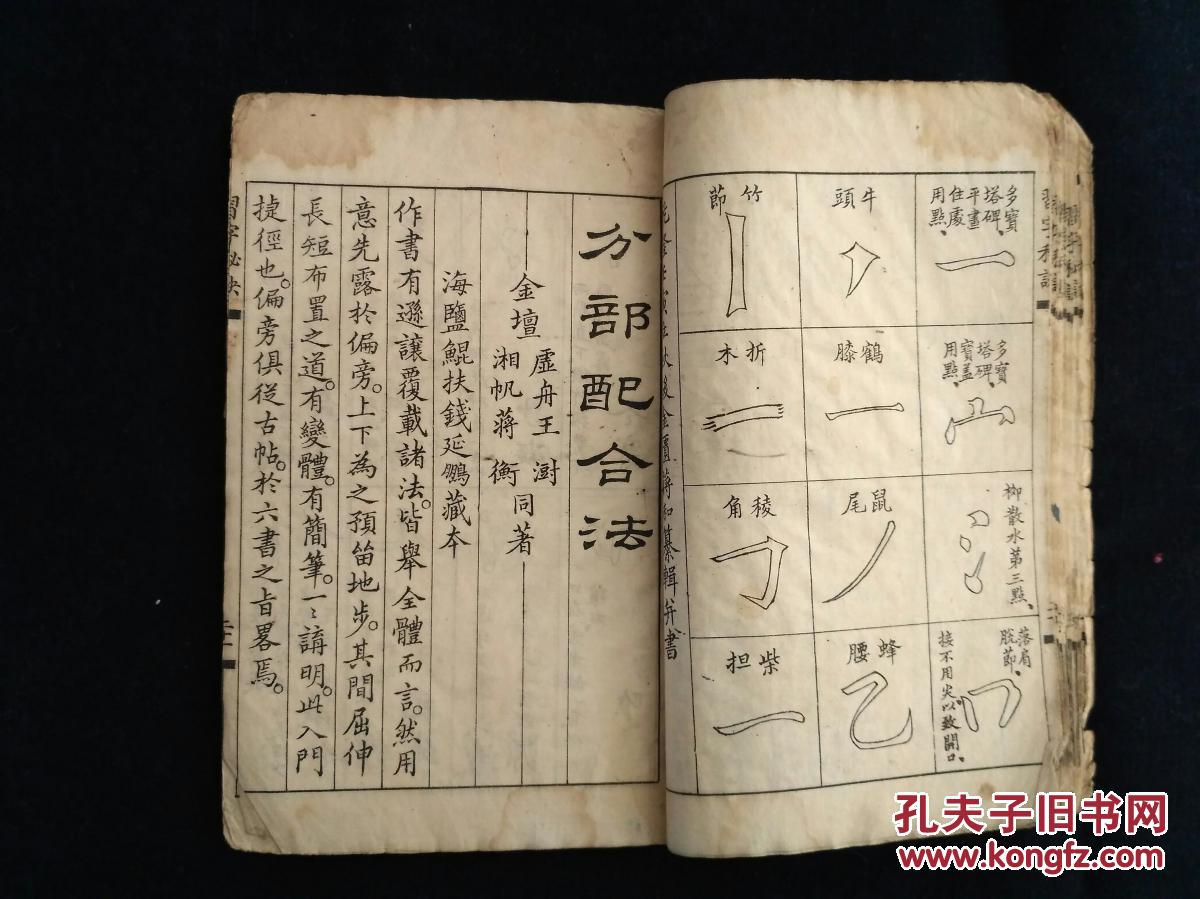 多寶
塔碑、
平畫
住處
用點、
多寶
塔碑、
寶盖
用點、
柳散水第三點、
落肩
脫節、
接不用尖以致開口、
牛頭
鶴膝
鼠尾
蜂腰
竹節
折木
稜角
柴担
纂輯并書
分部配合法
金壇
虛舟王澍
湘帆蔣衡
同著
海鹽鯤扶錢延鵬藏本
作書有遜讓覆載諸法。皆舉全體而言。然用
意先露於偏旁。上下為之預留地步。其間屈伸
長短布置之道。有變體。有簡筆。一〻講明。此入門
捷徑也。偏旁俱從古帖。於六書之旨畧焉。
習字秘訣
孔夫子旧书网
www.kongfz.com